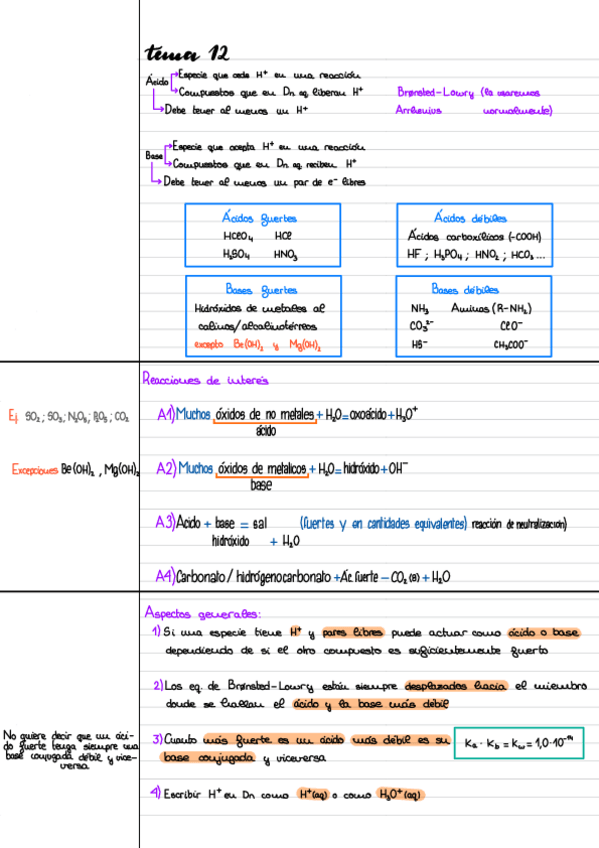 tema 12
Ácido
Especie que cede H⁺ en una reacción
Compuestos que en Dn aq. liberan H⁺
Brønsted-Lowry (la usaremos
Debe tener al menos un H⁺
Arrhenius normalmente)
Base
Especie que acepta H⁺ en una reacción
Compuestos que en Dn aq. reciben H⁺
Debe tener al menos un par de e⁻ libres
Ácidos fuertes
HClO₄ HCl
H₂SO₄ HNO₃
Ácidos débiles
Ácidos carboxílicos (-COOH)
HF ; H₃PO₄ ; HNO₂ ; HCO₃ ...
Bases fuertes
Hidróxidos de metales al
calinos/alcalinotérreos
excepto Be(OH)₂ y Mg(OH)₂
Bases débiles
NH₃ Aminas (R-NH₂)
CO₃²⁻ ClO⁻
HS⁻ CH₃COO⁻
Reacciones de interés
Ej SO₂ ; SO₃ ; N₂O₅ ; ; CO₂
A1) Muchos óxidos de no metales + H₂O = oxoácido + H₃O⁺
ácido
Excepciones Be(OH)₂ , Mg(OH)₂
A2) Muchos óxidos de metalicos + H₂O = hidróxido + OH⁻
base
A3) Ácido + base = sal (fuertes y en cantidades equivalentes) reacción de neutralización)
hidróxido + H₂O
A4) Carbonato / hidrógenocarbonato + Ác. fuerte – CO₂ (g) + H₂O
Aspectos generales:
1) Si una especie tiene H⁺ y pares libres puede actuar como ácido o base
dependiendo de si el otro compuesto es suficientemente fuerte
2) Los eq. de Brønsted-Lowry están siempre desplazados hacia el miembro
donde se hallan el ácido y la base más débil
No quiere decir que un áci-
do fuerte tenga siempre una
base conjugada débil y vice-
versa
3) Cuanto más fuerte es un ácido más débil es su
base conjugada y viceversa
Ka · Kb = Kw = 1,0·10⁻¹⁴
4) Escribir H⁺ en Dn como H⁺(aq) o como H₃O⁺(aq)